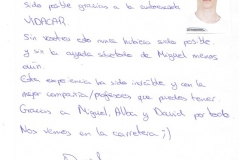 sido posible gracias a la autoescuela
VIDACAR
Sin vosotros esto nunca hubiera sido posible
y sin la ayuda sobretodo de Miguel menos
aún.
Esta experiencia ha sido increíble y con la
mejor compañía/profesores que puedes tener.
Gracias a Miguel, Alba y David por todo
Nos vemos en la carretera ;)